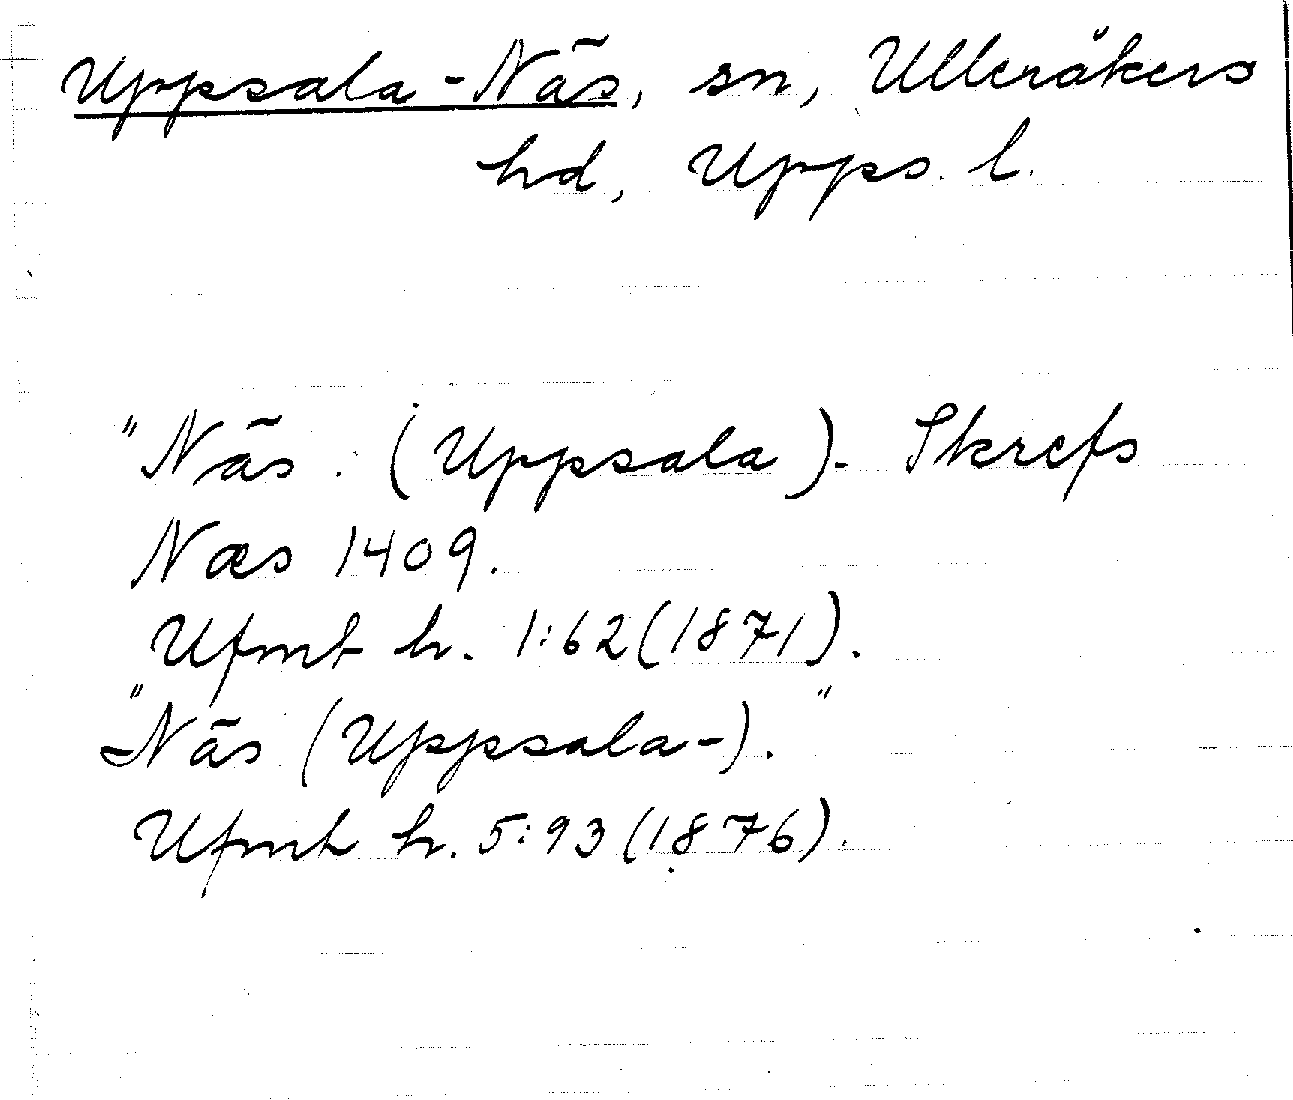 Uppsala-Näs, sn, Ulleråkers
hd, Upps. l.
"Näs. (Uppsala). Skrefs
Næs 1409.
Ufmt h. 1:62 (1871).
"Näs (Uppsala-)."
Ufmt h. 5:93 (1876).